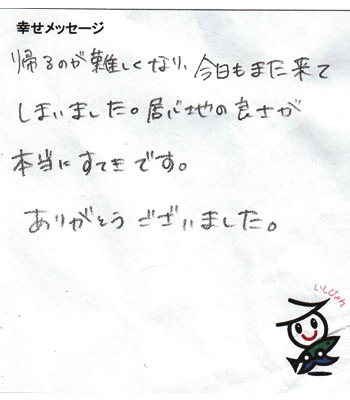 幸せメッセージ
帰るのが難しくなり、今日もまた来て
しまいました。居心地の良さが
本当にすてきです。
ありがとうございました。
いしじょん